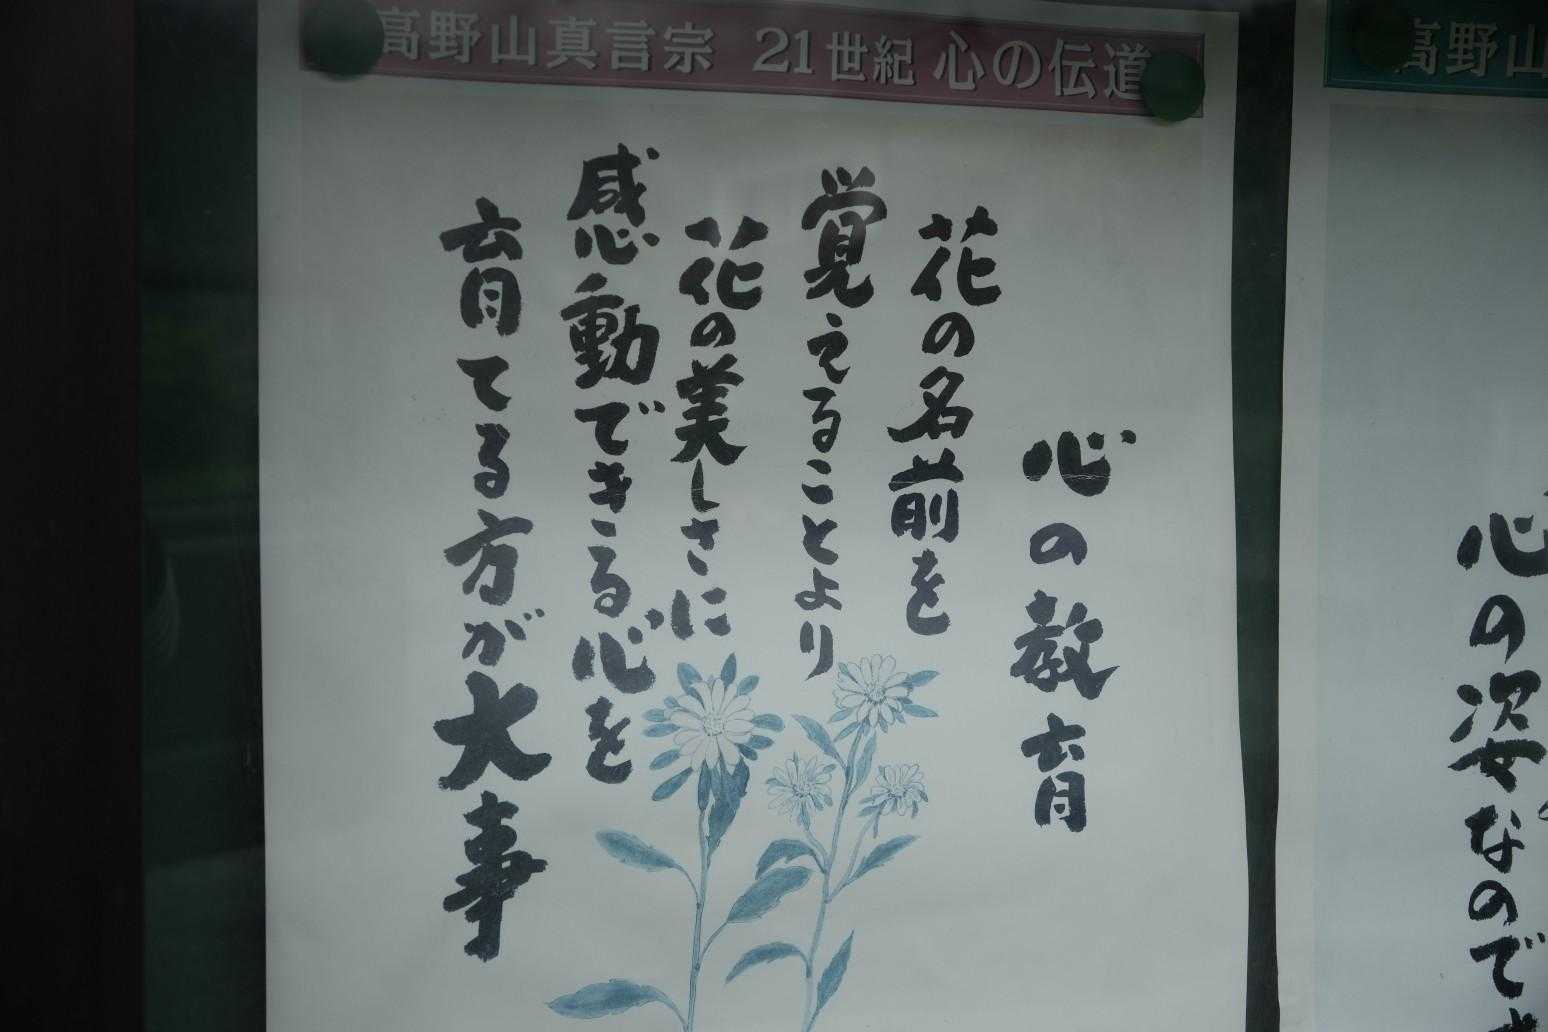 高野山真言宗 21世紀 心の伝道
心の教育
花の名前を
覚えることより
花の美しさに
感動できる心を
育てる方が大事
高野山
心の姿なので